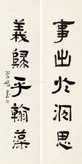 事出於沉思
義歸乎翰藻